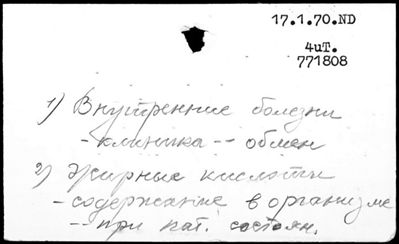 17.1.70.ND
4иТ.
771808
1) Внутренние болезни
- клиника -- обмен
2) Жирные кислоты
- содержание в организме
-- при пат. состоян.